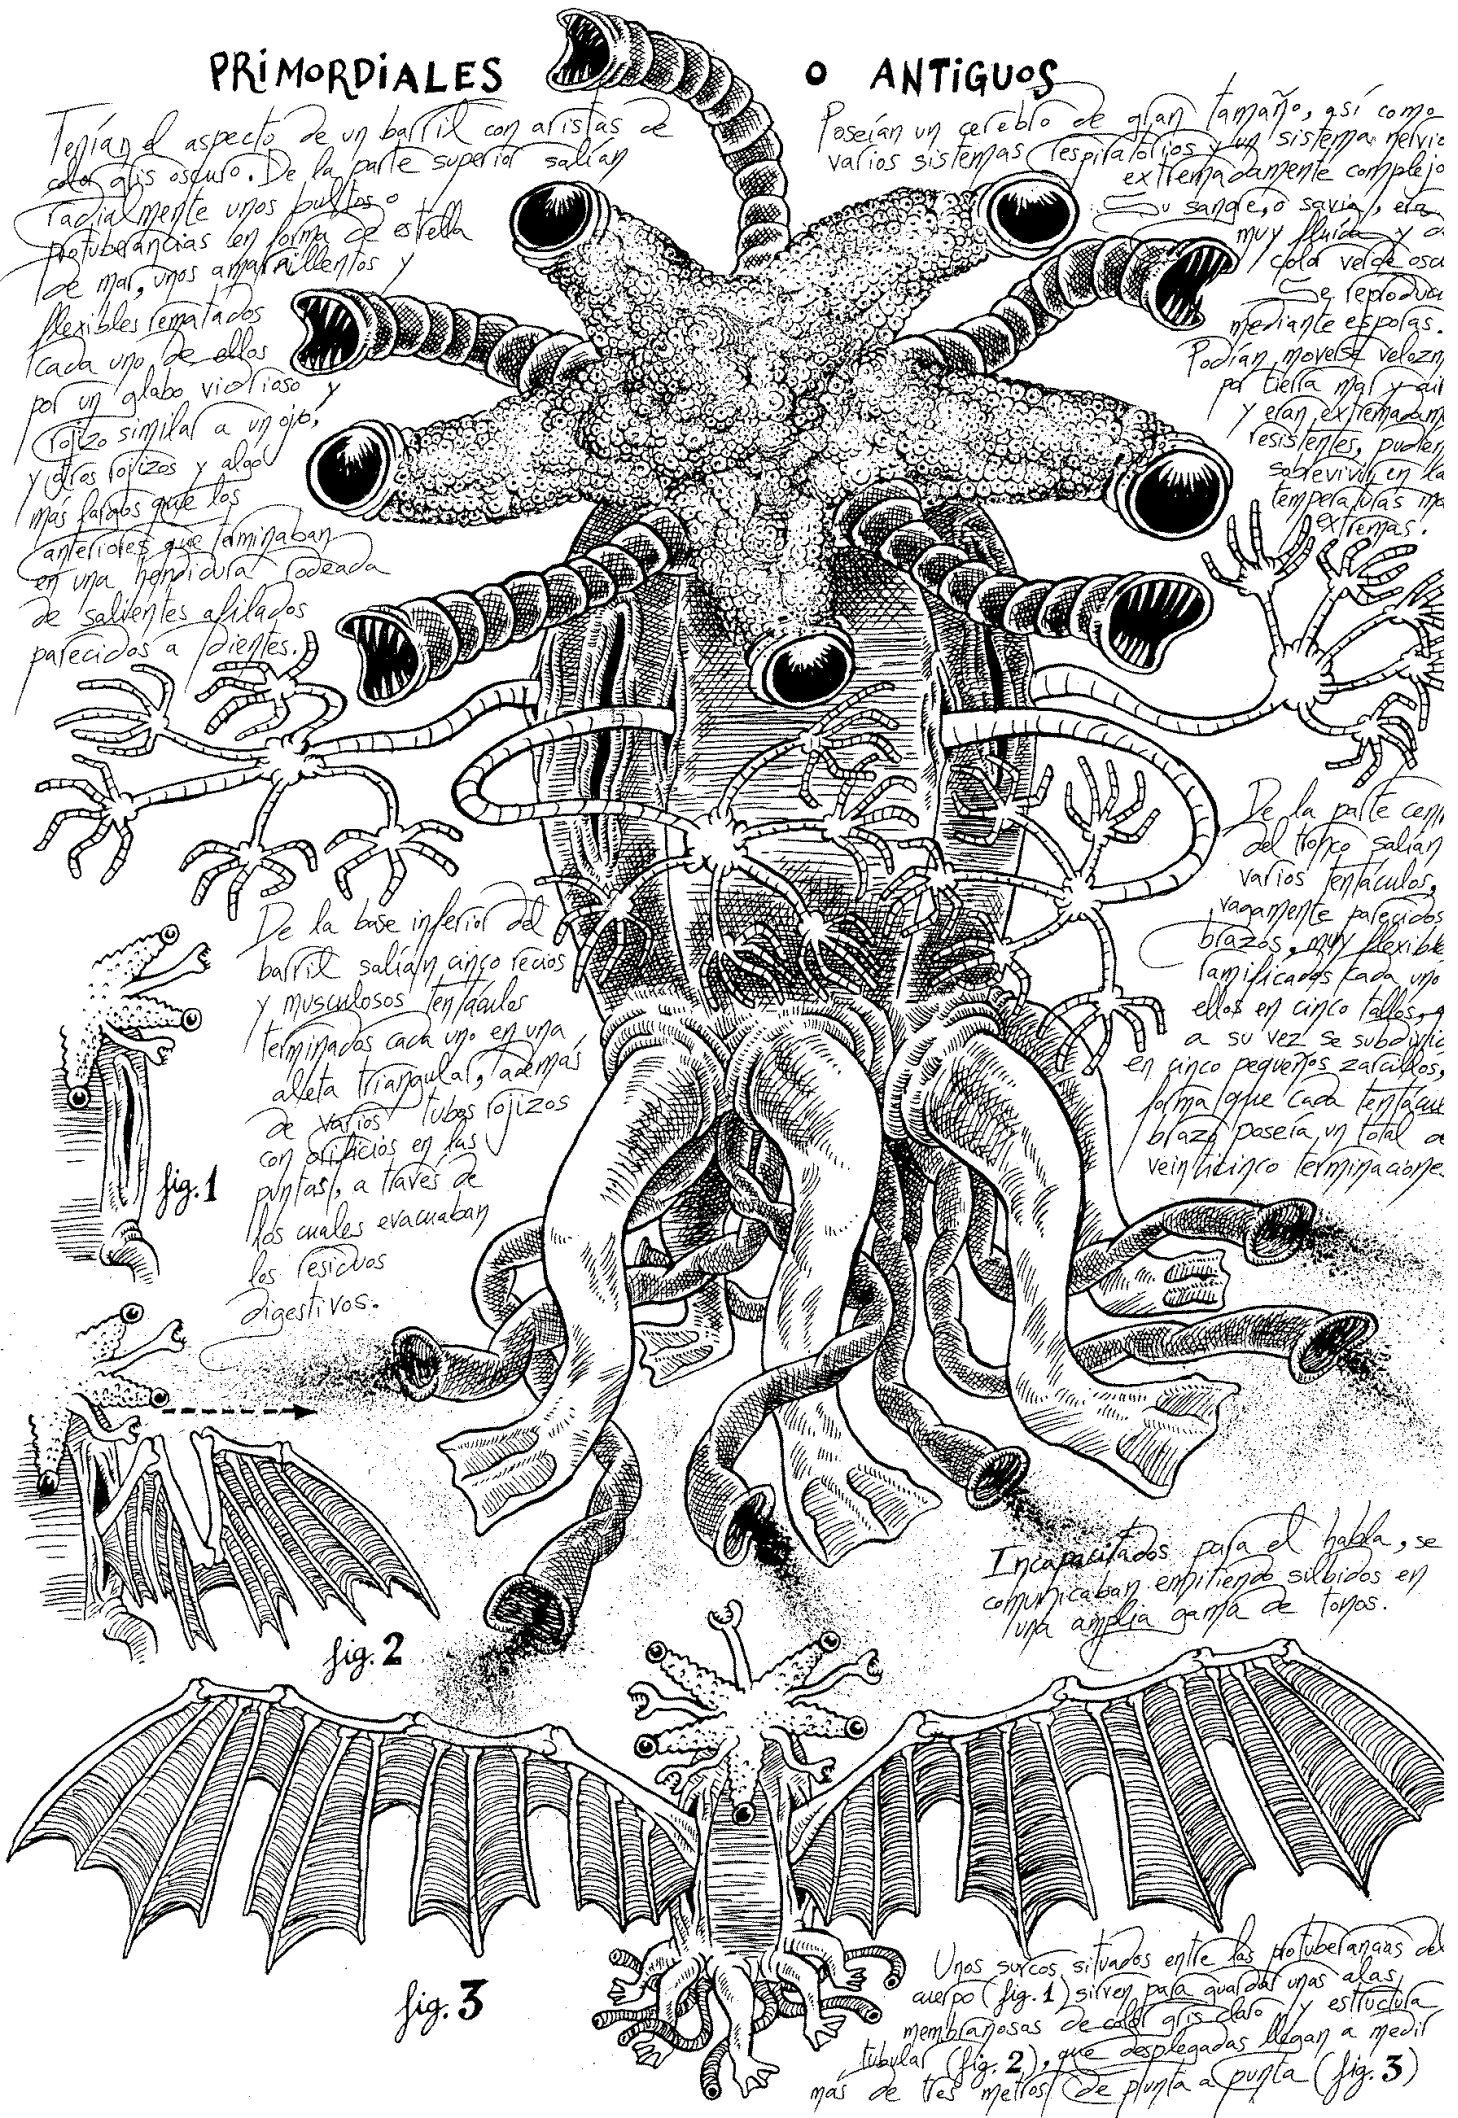 PRIMORDIALES O ANTIGUOS
Tenían el aspecto de un barril con aristas de
color gris oscuro. De la parte superior salían
radialmente unos bultos o
protuberancias en forma de estrella
de mar, unos amarillentos y
flexibles rematados
cada uno de ellos
por un globo vidrioso y
rojizo similar a un ojo,
y otros rojizos y algo
más largos que los
anteriores que terminaban
en una hendidura rodeada
de salientes afilados
parecidos a dientes.
Poseían un cerebro de gran tamaño, así como
varios sistemas respiratorios y un sistema nervio
extremadamente complejo
Su sangre, o savia, era
muy fluida y d
color verde oscu
Se reproducí
mediante esporas.
Podían moverse velozm
por tierra mar y air
y eran extremadam
resistentes, pudien
sobrevivir en la
temperaturas má
extremas.
De la parte cent
del tronco salían
varios tentáculos,
vagamente parecidos
brazos, muy flexible
ramificados cada uno
ellos en cinco tallos, q
a su vez se subdivid
en cinco pequeños zarcillos,
forma que cada tentácu
brazo poseía un total d
veinticinco terminacione
De la base inferior del
barril salían cinco recios
y musculosos tentáculos
terminados cada uno en una
aleta triangular, además
de varios tubos rojizos
con orificios en las
puntas, a través de
los cuales evacuaban
los residuos
digestivos.
fig. 1
Incapacitados para el habla, se
comunicaban emitiendo silbidos en
una amplia gama de tonos.
fig. 2
fig. 3
Unos surcos situados entre las protuberancias del
cuerpo (fig. 1) sirven para guardar unas alas
membranosas de color gris claro y estructura
tubular (fig. 2), que desplegadas llegan a medir
más de tres metros de punta a punta (fig. 3)